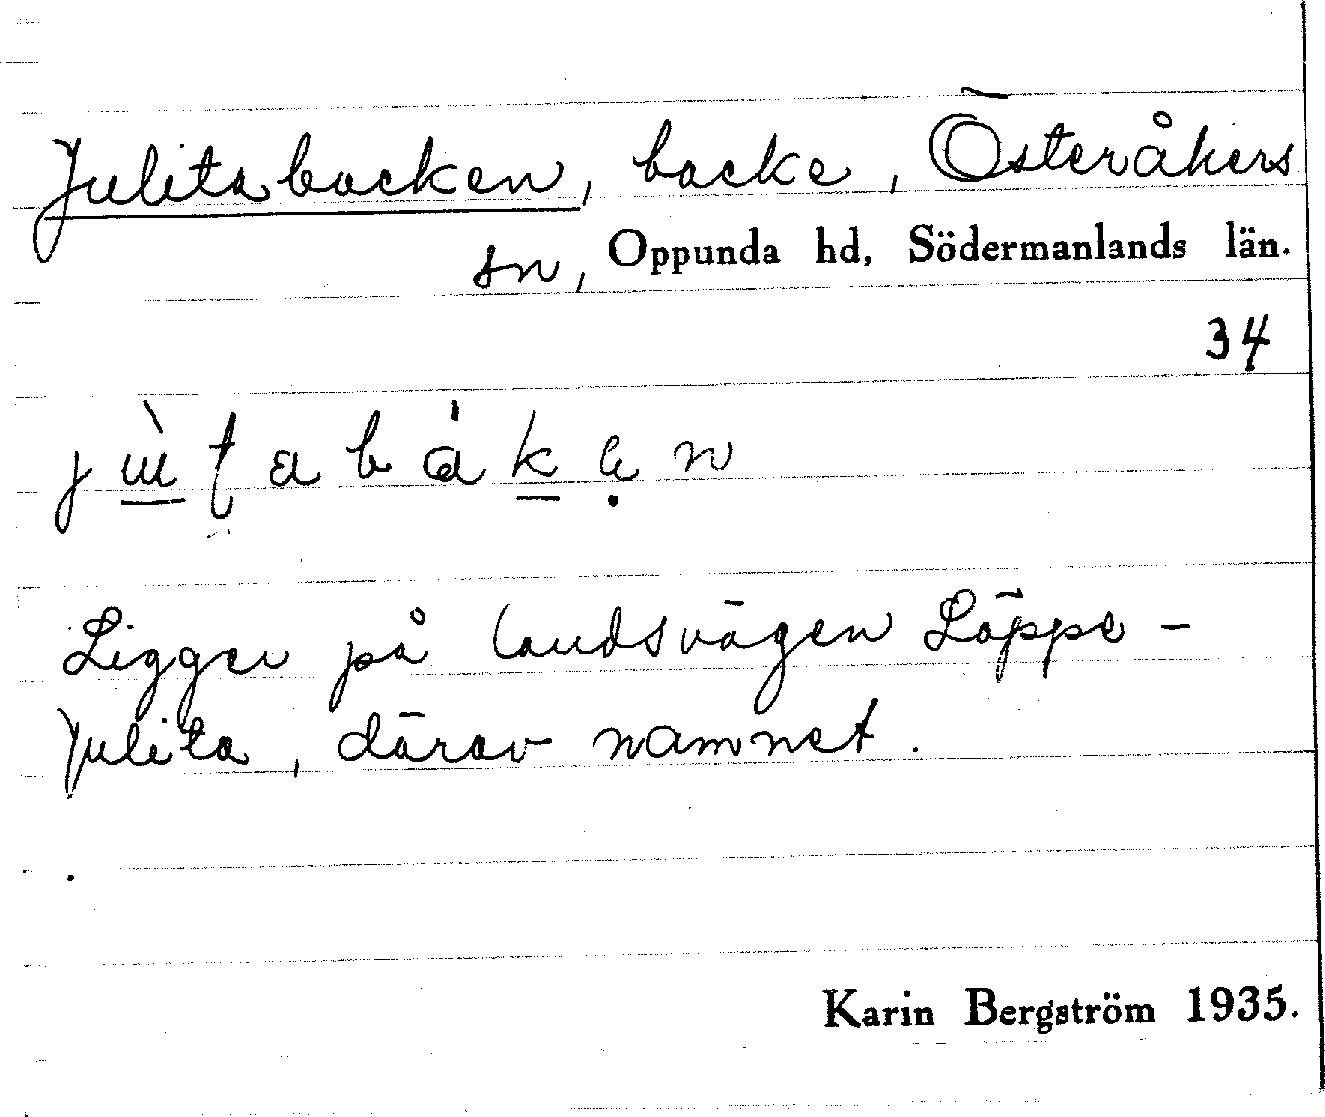 Julitabacken, backe, Österåkers
sn, Oppunda hd, Södermanlands län.
34
Ligger på landsvägen Läppe -
Julita, därav namnet.
Karin Bergström 1935.